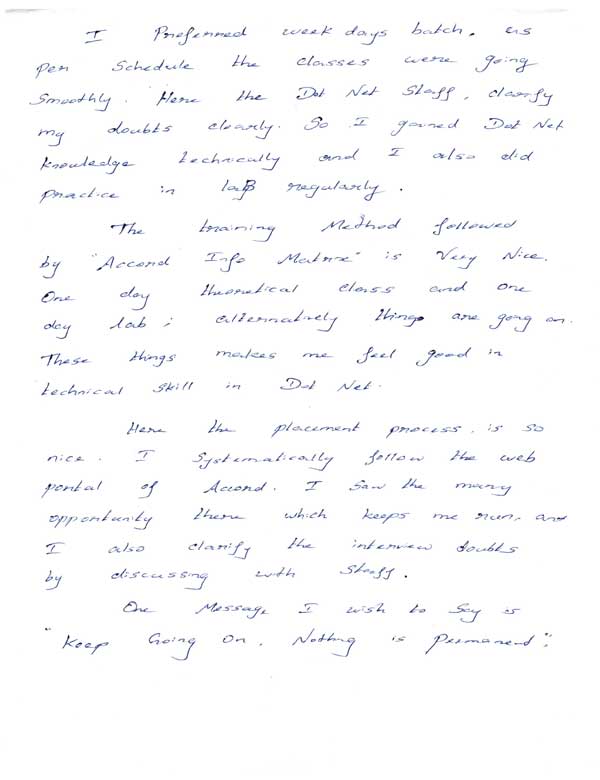 I Preferred week days batch. as
per Schedule the classes were going
Smoothly. Here the Dot Net Staff, clarify
my doubts clearly. So I gained Dot Net
knowledge technically and I also did
practice in lab regularly.
The training Method followed
by "Accord Info Matrix" is Very Nice.
One day theoretical class and one
day lab; alternatively things are going on.
These things makes me feel good in
technical skill in Dot Net.
Here the placement process, is so
nice. I Systematically follow the web
portal of Accord. I Saw the many
opportunity there which keeps me run, and
I also clarify the interview doubts
by discussing with Staff.
One Message I wish to Say is
"Keep Going On. Nothing is Permanent".